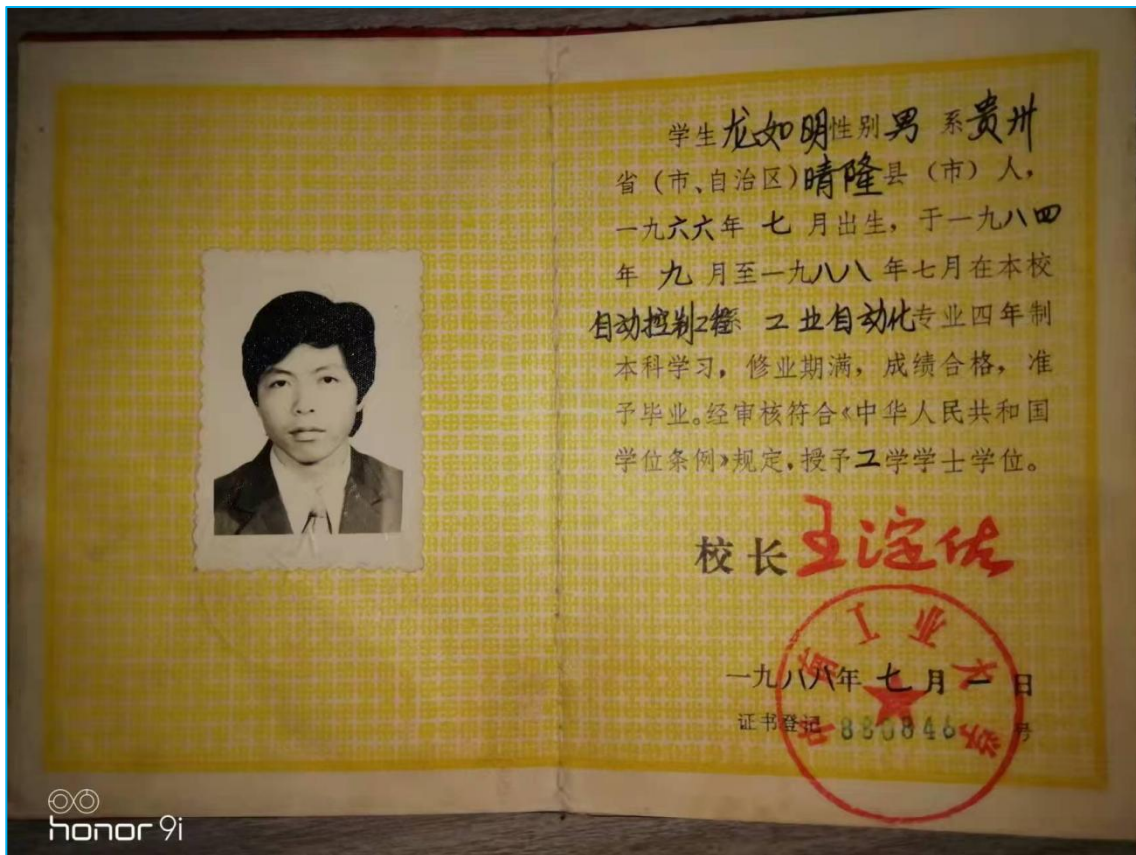 学生龙如明性别男 系贵州
省（市、自治区）晴隆县（市）人，
一九六六年 七 月出生，于一九八四
年 九 月至一九八八年七月在本校
自动控制工程系 工业自动化专业四年制
本科学习，修业期满，成绩合格，准
予毕业。经审核符合《中华人民共和国
学位条例》规定，授予工学学士学位。
校长王淀佐
中南工业大学
一九八八年 七 月 一 日
证书登记 880846 号
honor 9i